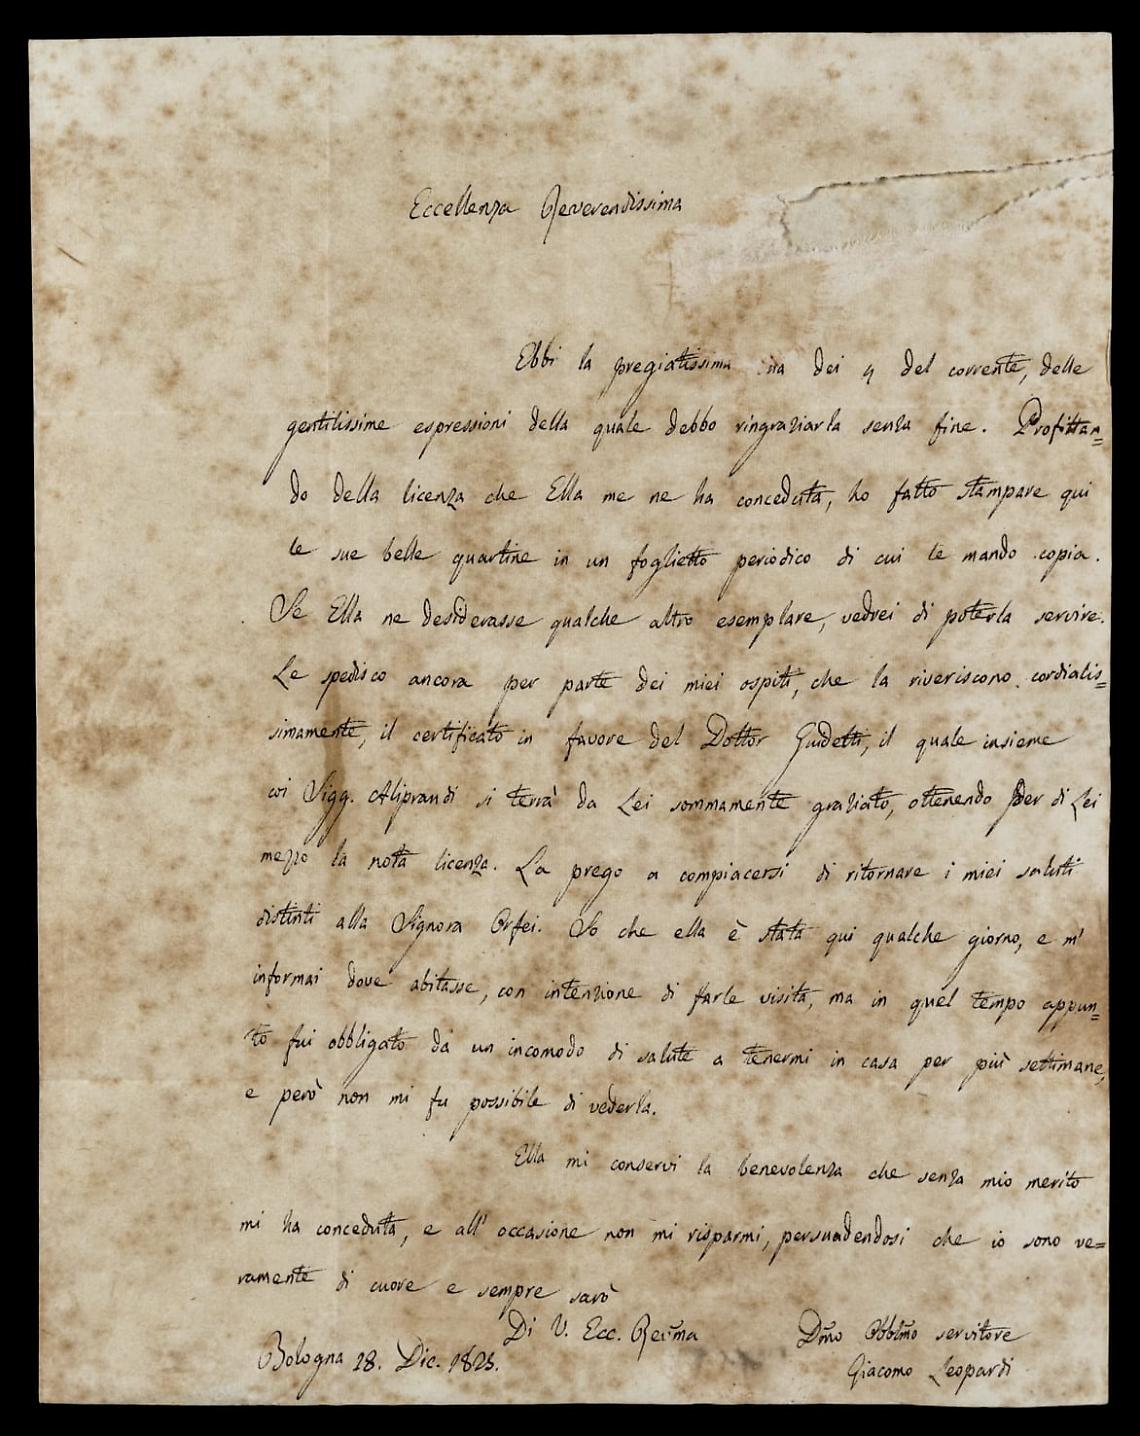 Eccellenza Reverendissima
Ebbi la pregiatissima sua dei 9 del corrente, delle
gentilissime espressioni della quale debbo ringraziarla senza fine. Profittan=
do della licenza che Ella me ne ha conceduta, ho fatto stampare qui
le sue belle quartine in un foglietto periodico di cui le mando copia.
Se Ella ne desiderasse qualche altro esemplare, vedrei di poterla servire.
Le spedisco ancora per parte dei miei ospiti, che la riveriscono cordialis=
simamente, il certificato in favore del Dottor Guidetti, il quale insieme
coi Sigg. Aliprandi si terrà da Lei sommamente graziato, ottenendo per di Lei
mezzo la nota licenza. La prego a compiacersi di ritornare i miei saluti
distinti alla Signora Orfei. So che ella è stata qui qualche giorno, e m'
informai dove abitasse, con intenzione di farle visita, ma in quel tempo appun=
to fui obbligato da un incomodo di salute a tenermi in casa per più settimane,
e però non mi fu possibile di vederla.
Ella mi conservi la benevolenza che senza mio merito
mi ha conceduta, e all' occasione non mi risparmi, persuadendosi che io sono ve=
ramente di cuore e sempre sarò
Di V. Ecc. Rev̄ma
Dm̄o Obblm̄o servitore
Bologna 28. Dic. 1825.
Giacomo Leopardi